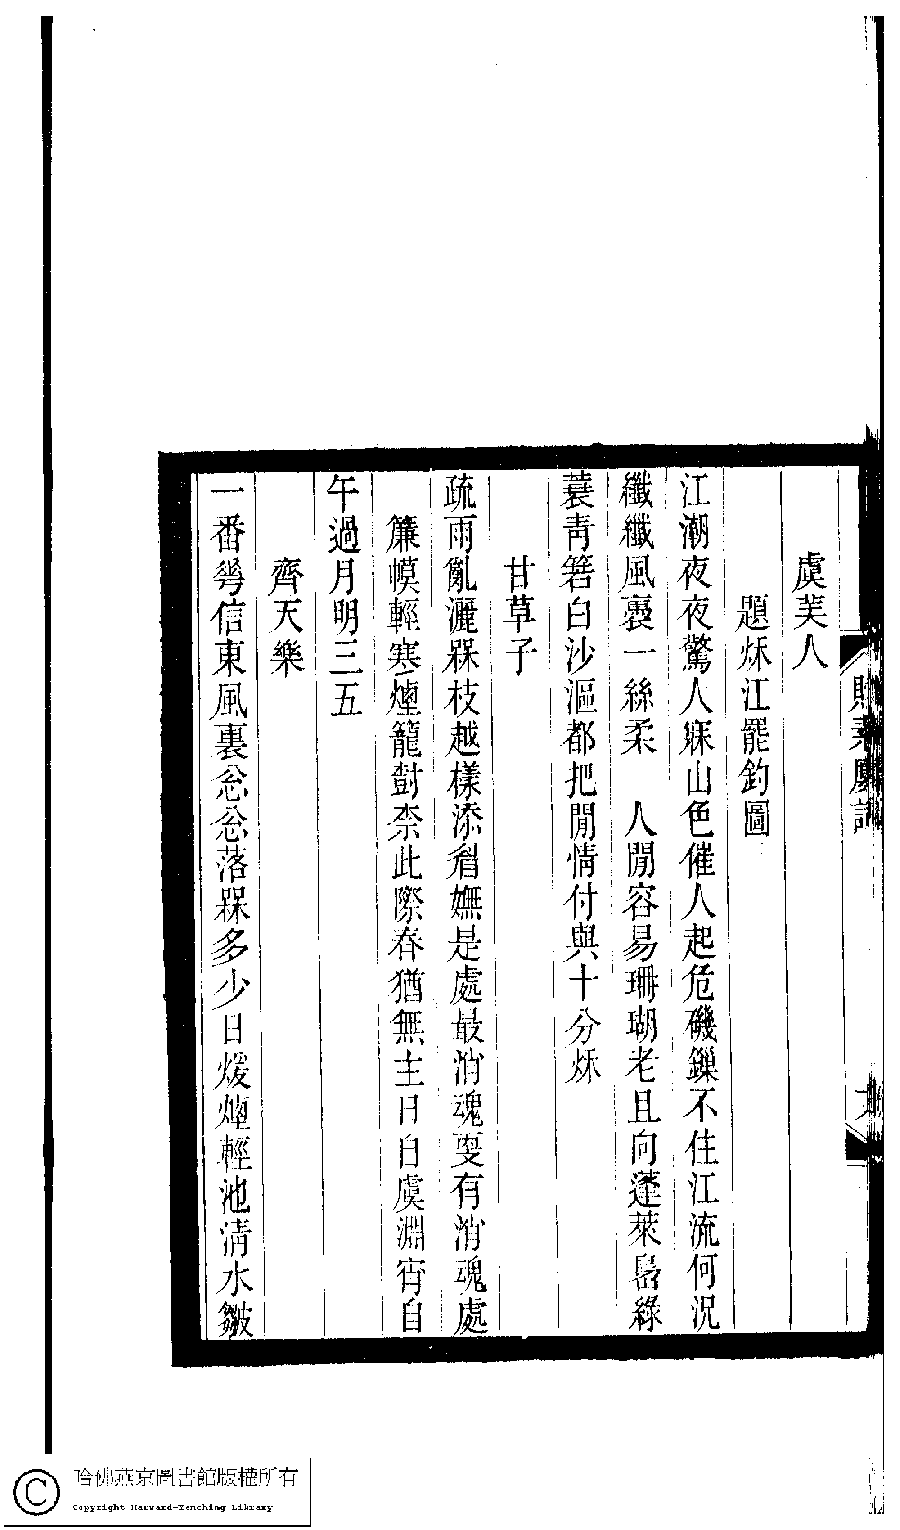 虞美人
題秌江罷釣圖
江潮夜夜驚人寐山色催人起危磯鏁不住江流何況
纖纖風裛一絲柔　人閒容易珊瑚老且向蓬萊㠀綠
蓑青箬白沙漚都把閒情付與十分秌
甘草子
疏雨亂灑槑枝越樣添眉嫵是處最消魂㪅有消魂處
簾幙輕寒煙籠樹柰此際春猶無主日白虞淵宵自
午過月明三五
齊天樂
一番㝵信東風裏忩忩落槑多少日煖煙輕池淸水皺
哈佛燕京圖書館版權所有
Copyright Harvard-Yenching Library